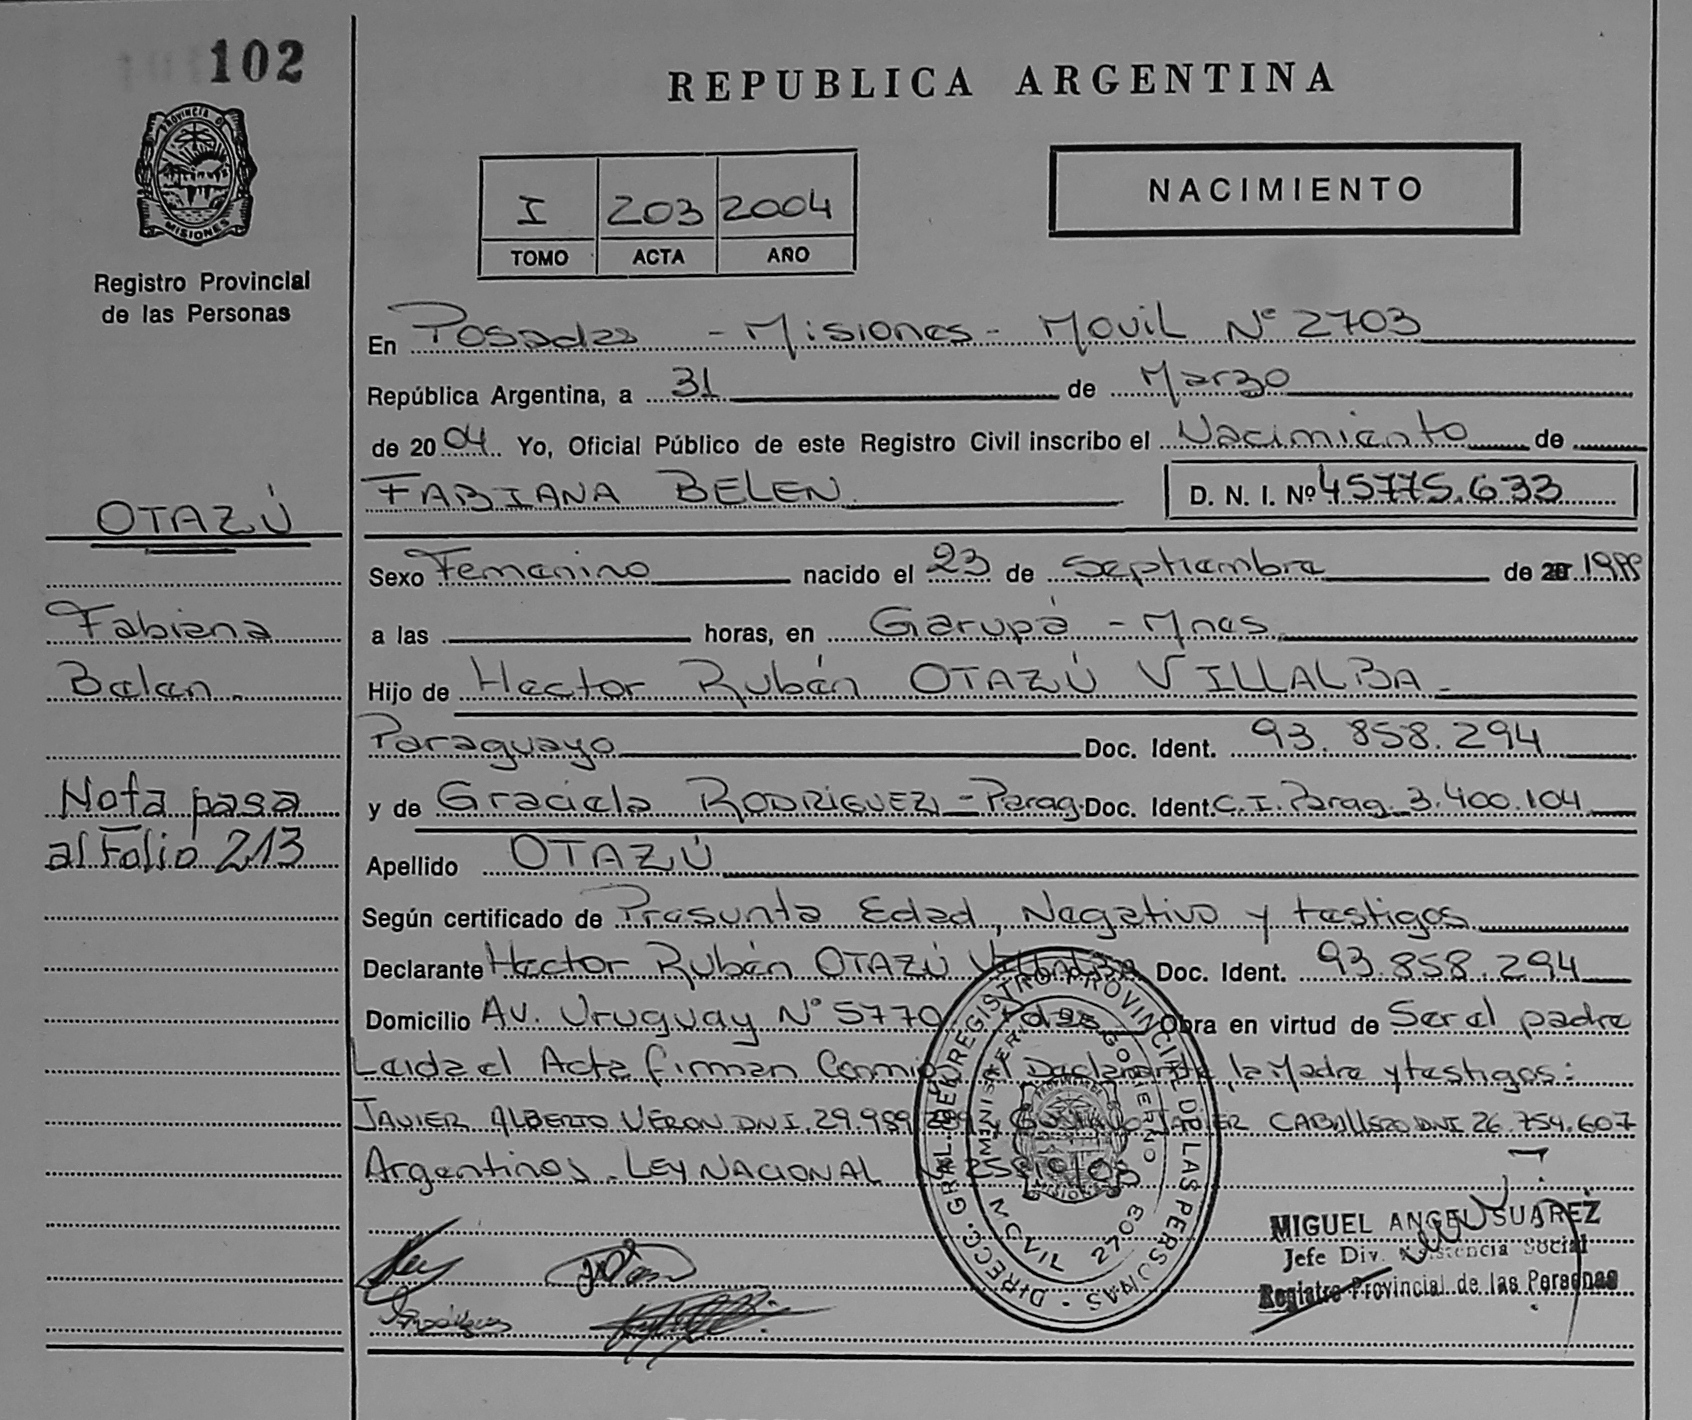 102
REPUBLICA ARGENTINA
PROVINCIA DE
MISIONES
Registro Provincial
de las Personas
I 203 2004
TOMO ACTA AÑO
NACIMIENTO
En Posadas - Misiones - Movil N° 2703
República Argentina, a 31 de Marzo
de 2004 Yo, Oficial Público de este Registro Civil inscribo el Nacimiento de
FABIANA BELEN D. N. I. Nº 45775.633
OTAZÚ
Fabiana
Belen.
Nota pasa
al Folio 213
Sexo Femenino nacido el 23 de Septiembre de 20
a las horas, en Garupá - Mnes
Hijo de Hector Rubén OTAZÚ VILLALBA -
Paraguayo Doc. Ident. 93.858.294
y de Graciela RODRIGUEZ - Parag. Doc. Ident. C.I. Parag. 3.400.104
Apellido OTAZÚ
Según certificado de Presunta Edad, Negativo y testigos
Declarante Hector Rubén OTAZÚ Villalba Doc. Ident. 93.858.294
Domicilio Av. Uruguay N° 5770 Pdas Obra en virtud de Ser el padre
Leida el Acta firman Conmigo el Declarante, la Madre y testigos:
JAVIER ALBERTO VERON DNI. 29.989 JAVIER CABALLERO DNI 26.754.607
Argentinos. LEY NACIONAL
DIRECC. GRAL. DEL REGISTRO PROVINCIAL DE LAS PERSONAS
MINISTERIO DE GOBIERNO
MOVIL 2703
MIGUEL ANGEL SUAREZ
Jefe Div. Asistencia Social
Registro Provincial de las Personas